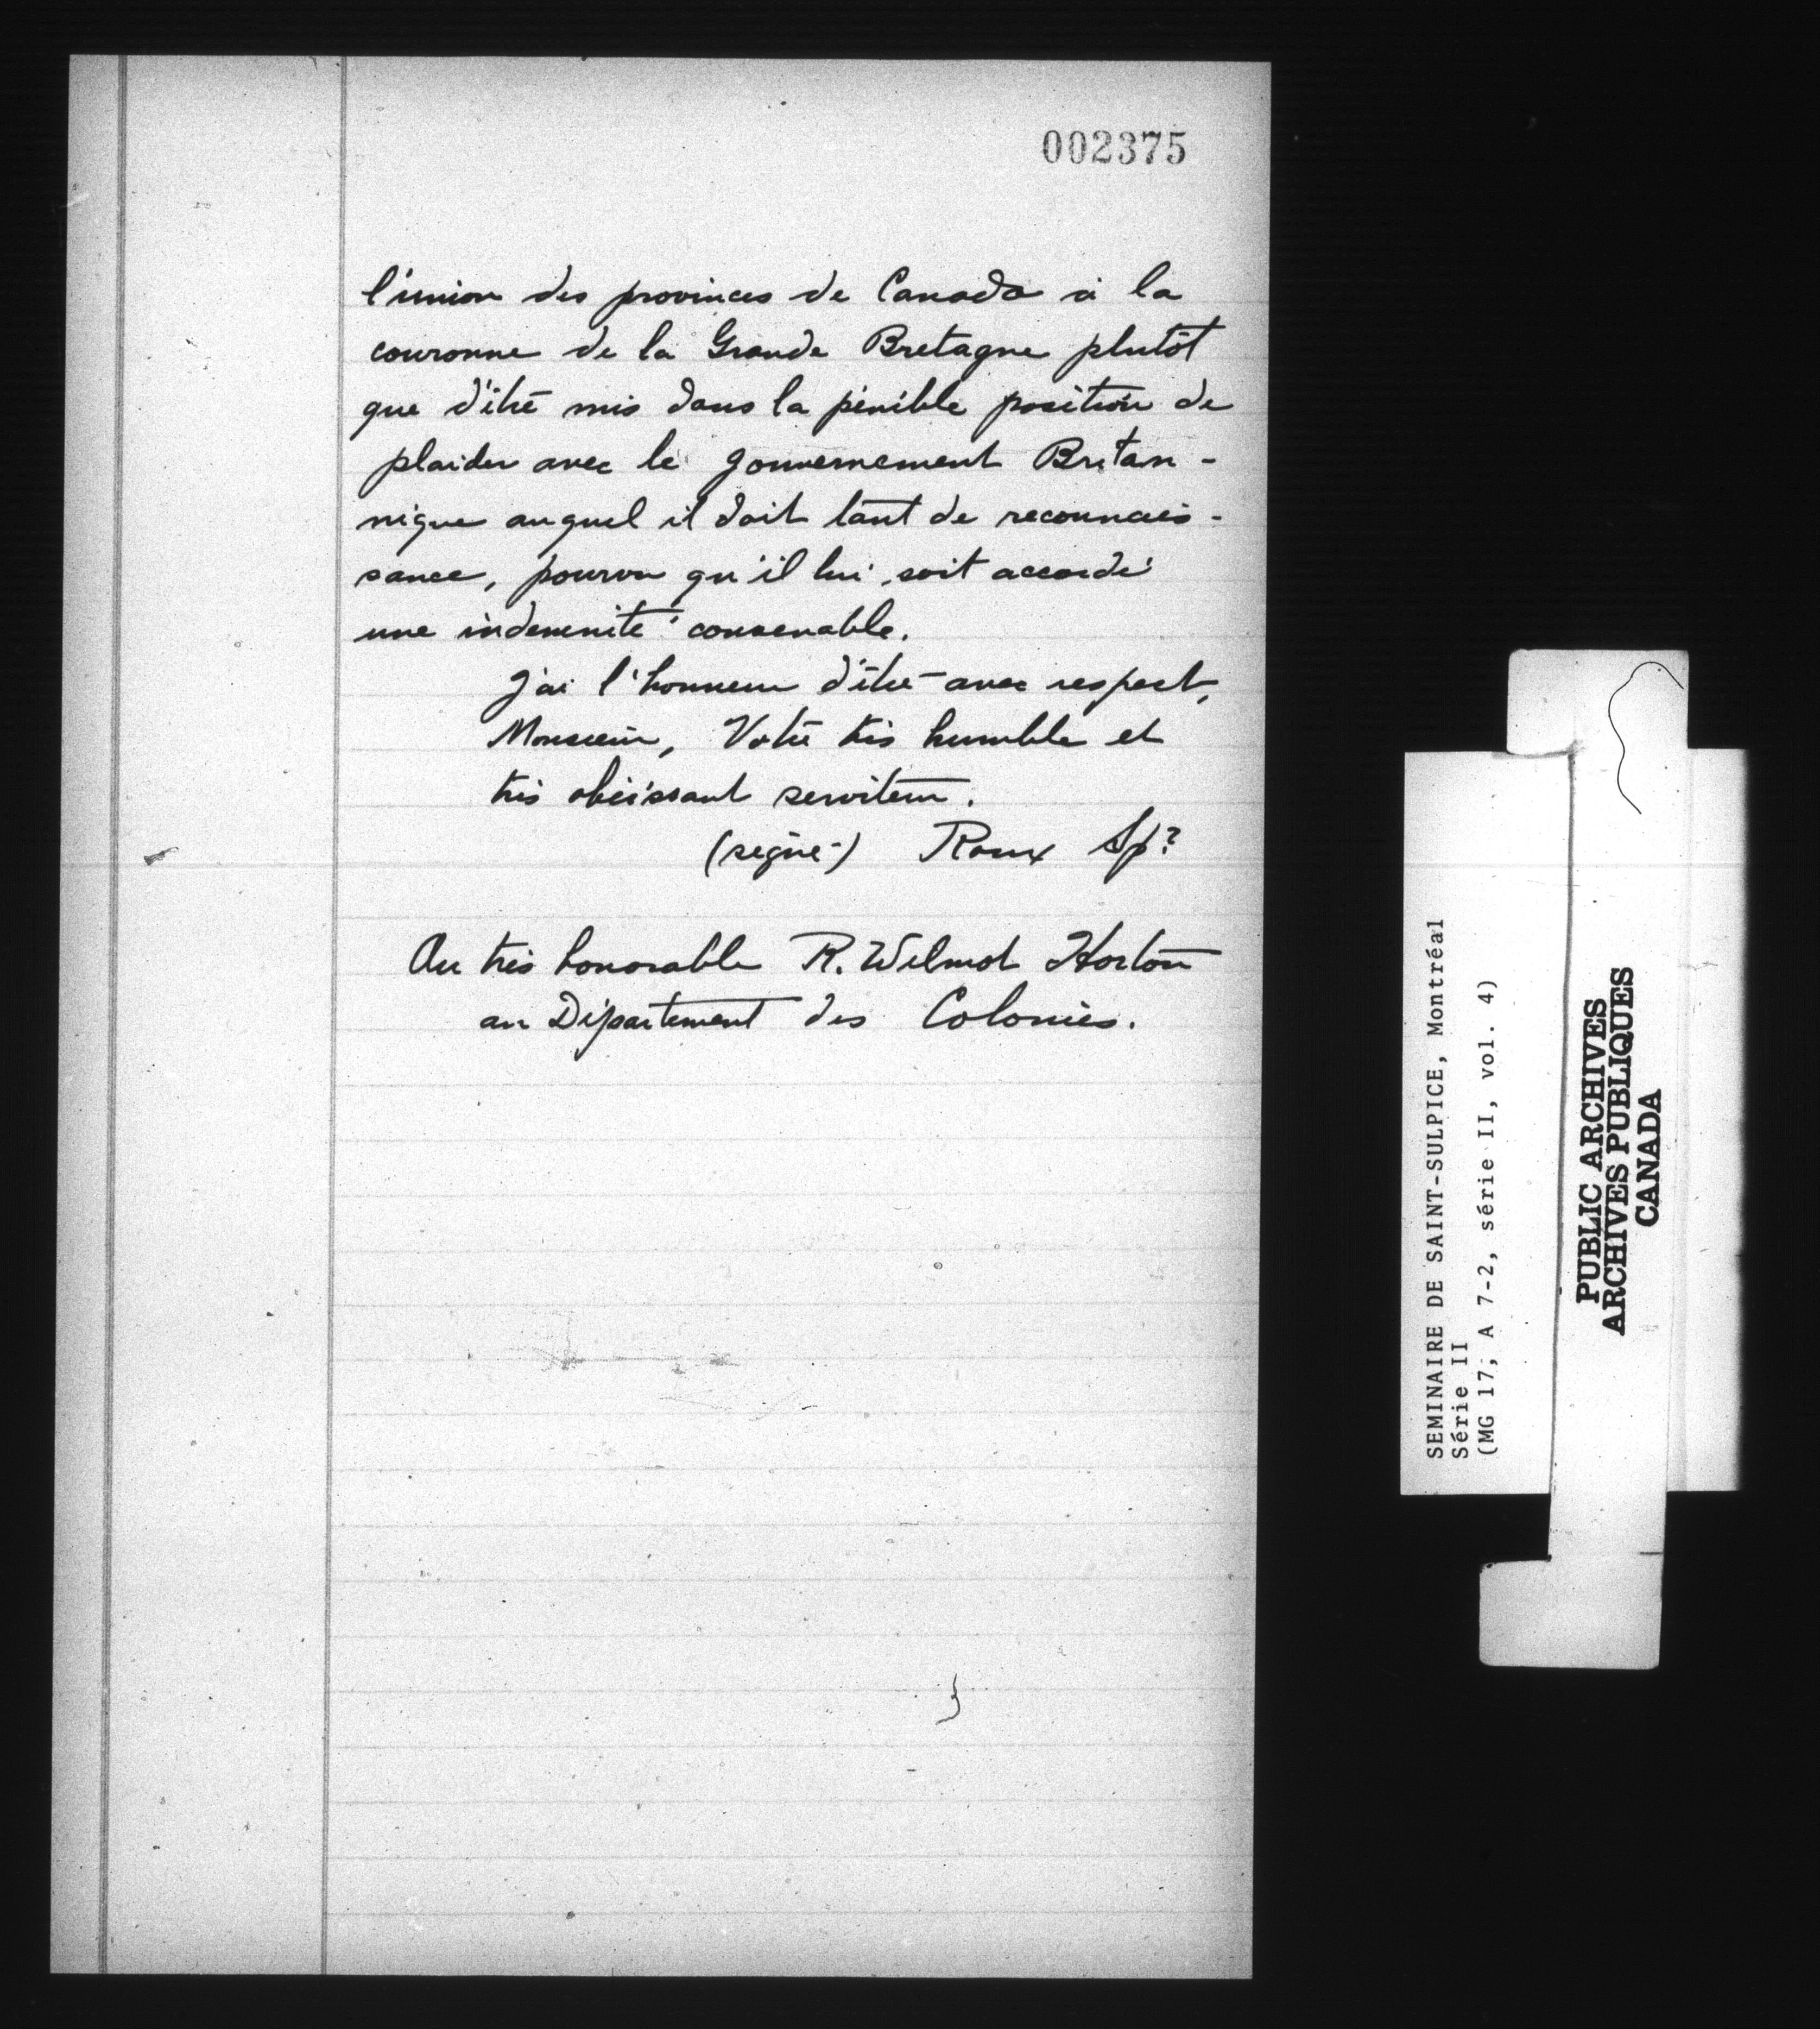 002375
l'union des provinces de Canada à la
couronne de la Grande Bretagne plutôt
que d'être mis dans la pénible position de
plaider avec le gouvernement Britan-
nique auquel il doit tant de reconnais-
sance, pourvu qu'il lui soit accordé
une indemnité convenable.
J'ai l'honneur d'être avec respect,
Monsieur, Votre très humble et
très obéissant serviteur.
(signé) Roux Sp?
Au très honorable R. Wilmot Horton
au Département des Colonies.
SEMINAIRE DE SAINT-SULPICE, Montréal
Série II
(MG 17, A 7-2, série II, vol. 4)
PUBLIC ARCHIVES
ARCHIVES PUBLIQUES
CANADA